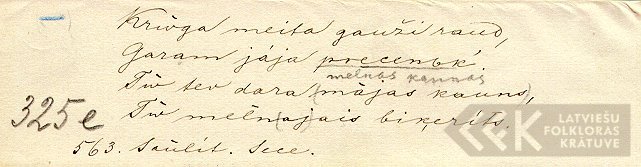 Krōga meita gauži raud,
Garam jāja precenok'.
melnas kaunas
Tō tev dara (mājas kauns),
325e
Tō meln(ajais biķerīts.
563. Saulīt. Sece.
LATVIEŠU
FOLKLORAS
KRĀTUVE